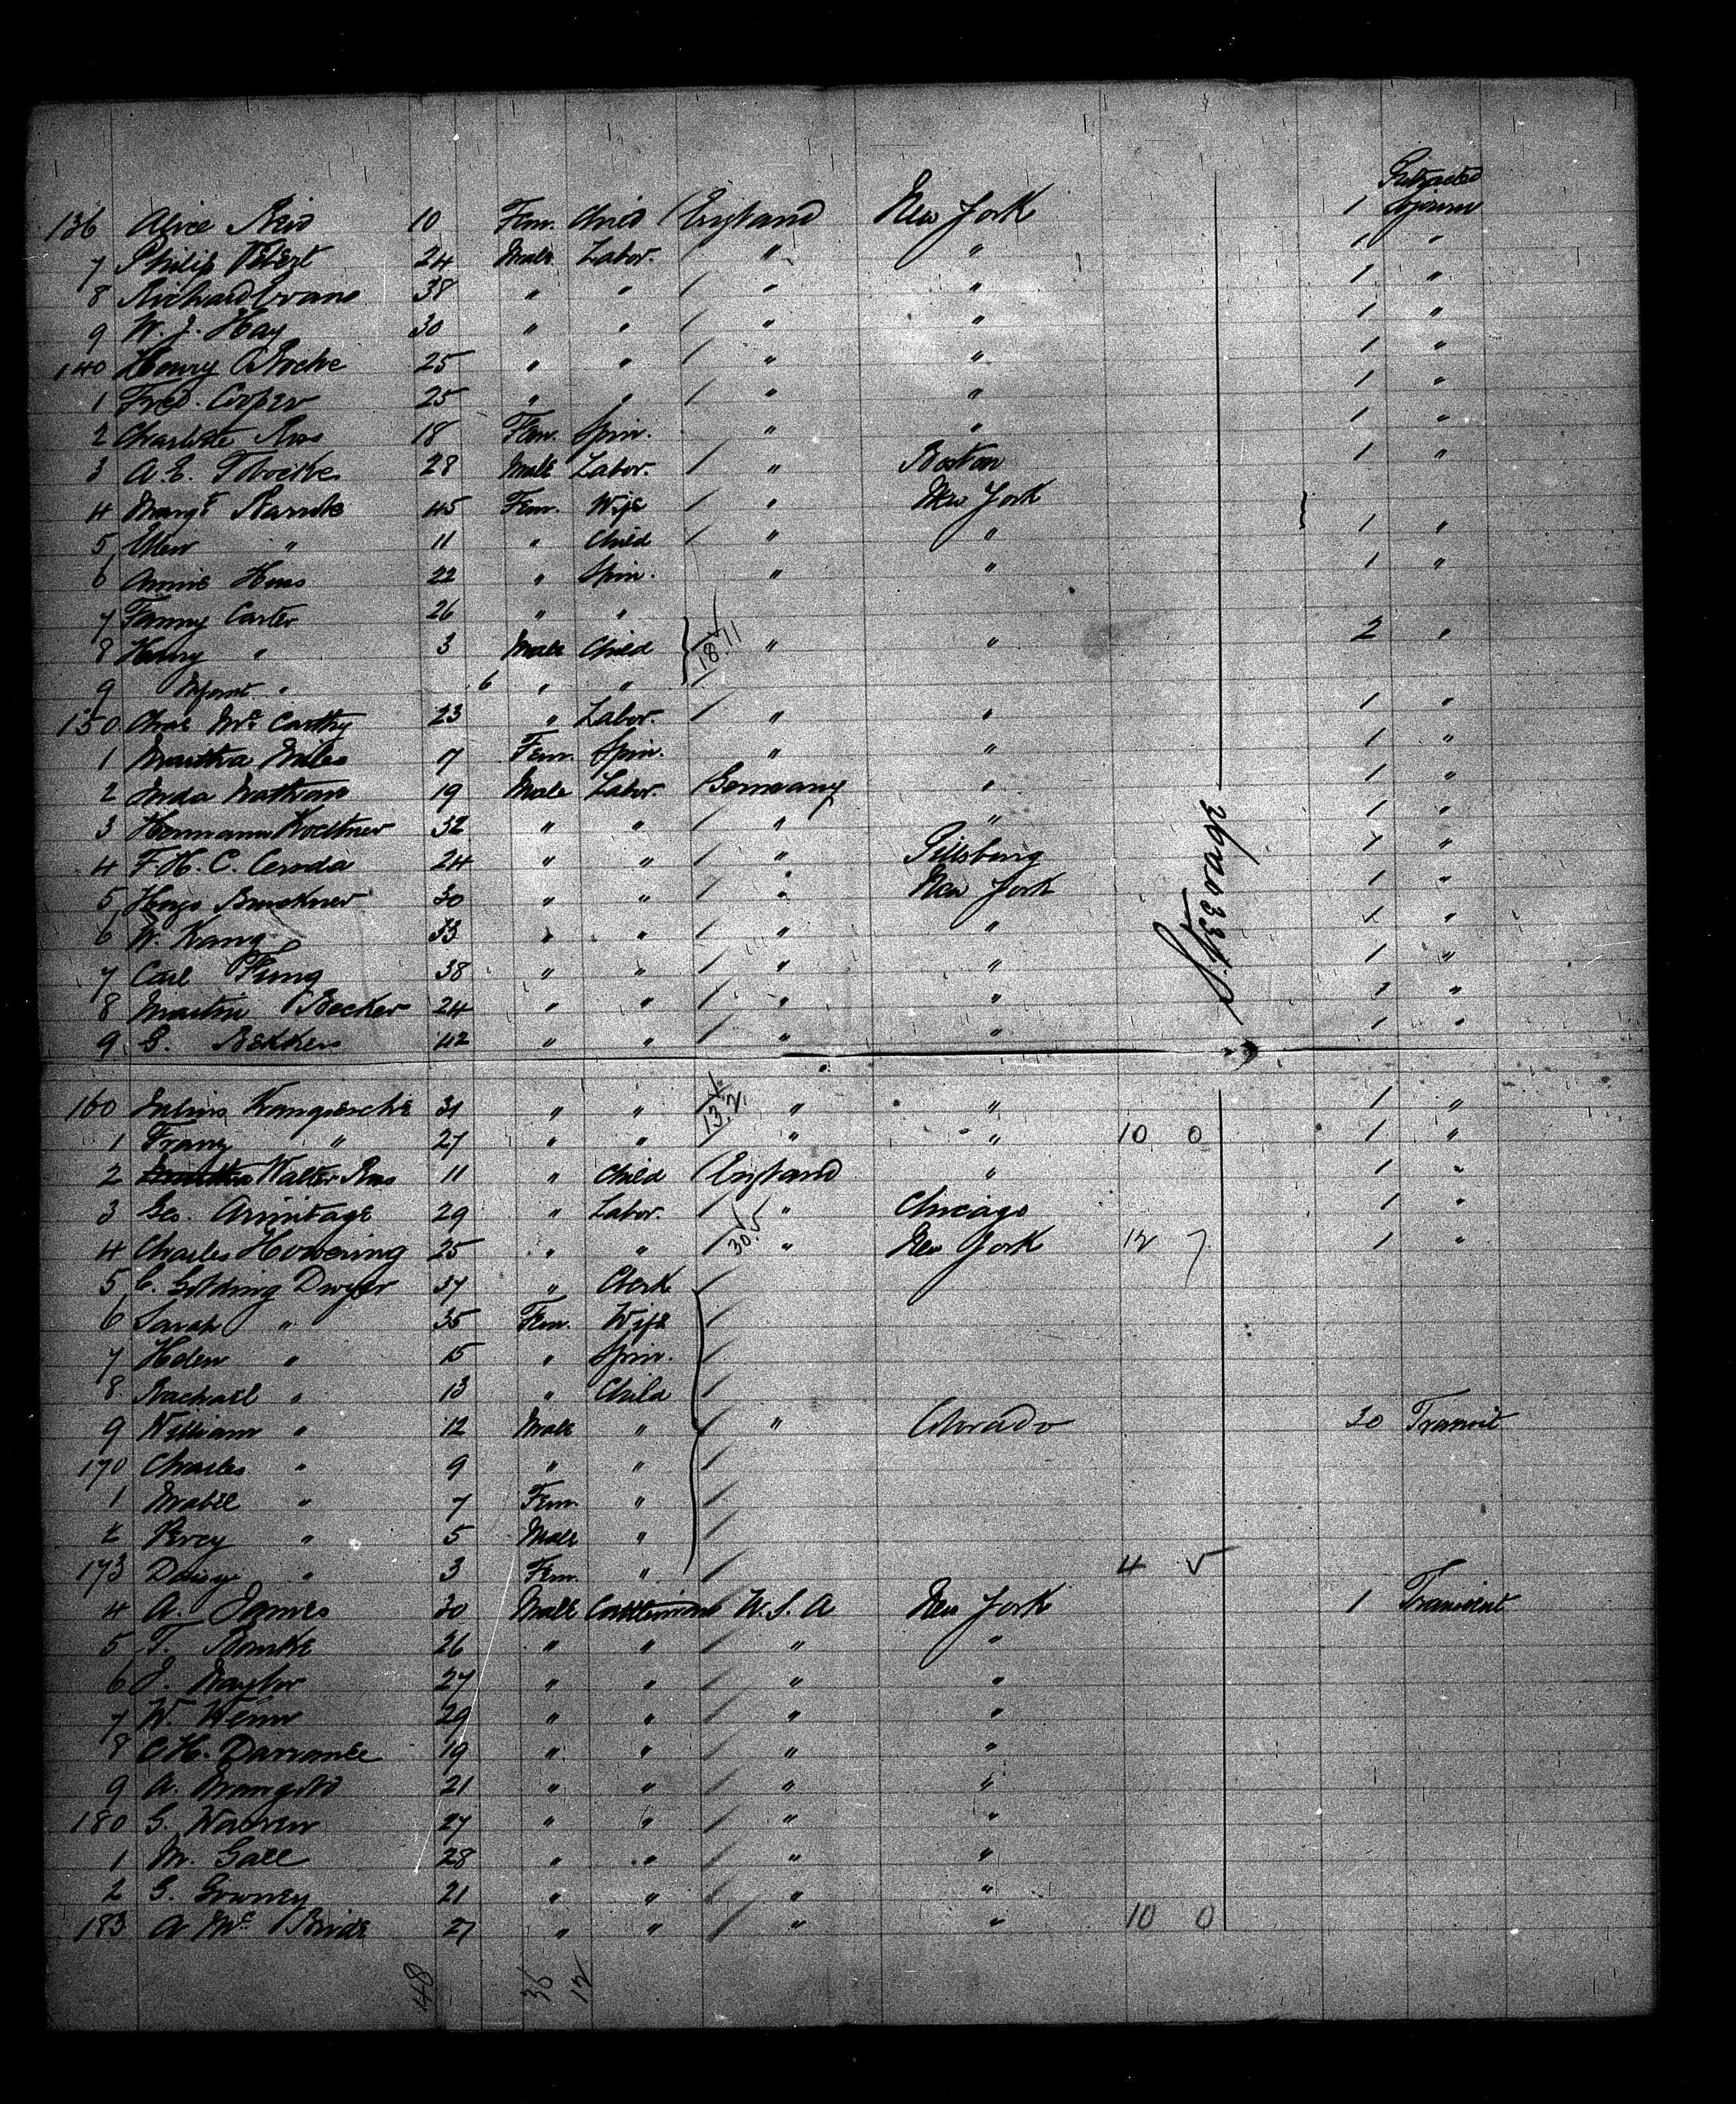 Protracted
136 Alice Reid 10 Fem. Child England New York 1 Sojourn
7 Philip 24 Male Labor. " " 1 "
8 Richard Evans 38 " " " " 1 "
9 W. J. Hay 30 " " " " 1 "
140 Henry 25 " " " " 1 "
1 Fred. Cooper 25 " " " " 1 "
2 Charlotte Ross 18 Fem. Spin. " " 1 "
3 A. E. 28 Male Labor. " Boston 1 "
4 Margt 45 Fem. Wife " New York
5 Ellen " 11 " Child " " 1 "
6 Annie 22 " Spin. " " 1 "
7 Fanny Carter 26 " "
8 Harry " 3 Male Child " " 2 "
9 Infant " 6 " "
150 Chas Mc Carthy 23 " Labor. " " 1 "
1 Martha Miles 7 Fem. Spin. " " 1 "
2 Nathan 19 Male Labor. Germany " 1 "
3 Hermann 32 " " " " 1 "
4 F. H. C. 24 " " " Pittsburg 1 "
5 Hugo Bruckner 30 " " " New York 1 "
6 W. Kang 33 " " " " 1 "
7 Carl 38 " " " " 1 "
8 Martin Becker 24 " " " " 1 "
9 G. Bekkers 42 " " " " 1 "
160 Julius 31 " " " " 1 "
1 Franz " 27 " " " " 10 0 1 "
2 Walter Ross 11 " Child England " 1 "
3 Geo. Armitage 29 " Labor. " Chicago 1 "
4 Charles 25 " " " New York 12 7 1 "
5 C. Golding Dwyer 37 " Clerk
6 Sarah " 35 Fem. Wife
7 Helen " 15 " Spin.
8 Rachael " 13 " Child
9 William " 12 Male " " Colorado 30 Transit
170 Charles " 9 " "
1 Mabel " 7 Fem. "
2 Percy " 5 Male "
173 Daisy " 3 Fem. " 4
4 A. James 30 Male Cattleman U. S. A New York 1 Transient
5 T. 26 " " " "
6 J. Naylor 27 " " " "
7 W. 29 " " " "
8 C. H. 19 " " " "
9 A. Mangold 21 " " " "
180 G. Warren 27 " " " "
1 M. Gall 28 " " " "
2 G. 21 " " " "
183 A Mc Bride 27 " " " " 10 0
48 36 12